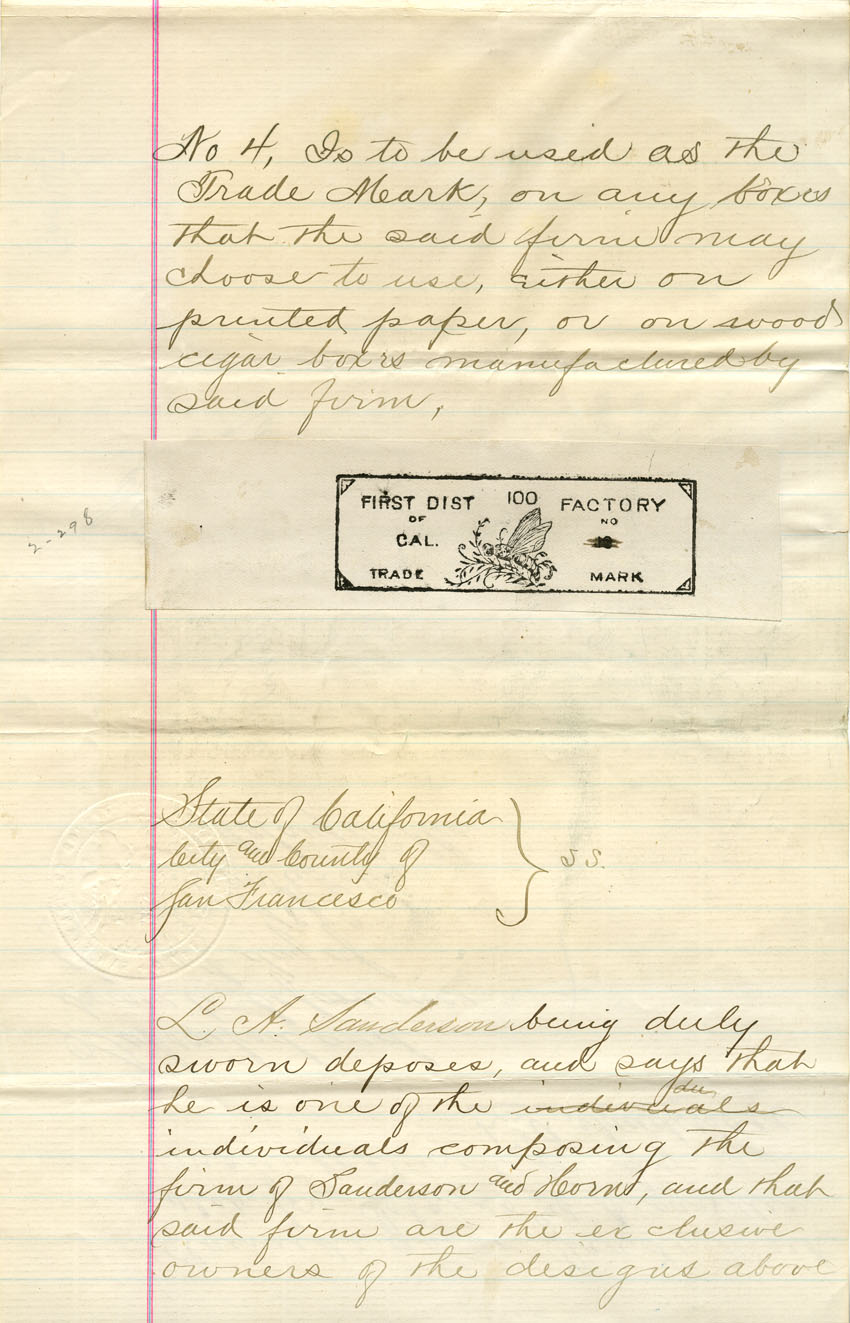 No 4, Is to be used as the
Trade Mark, on any boxes
that the said firm may
choose to use, either on
printed paper, or on wood
cigar boxes manufactured by
said firm,
2-298
FIRST DIST 100 FACTORY
OF NO
CAL.
TRADE MARK
State of California
City and County of SS.
San Francesco
L. A. Sanderson being duly
sworn deposes, and says that
he is one of the
individuals composing the
firm of Sanderson and Horn, and that
said firm are the exclusive
owners of the designs above